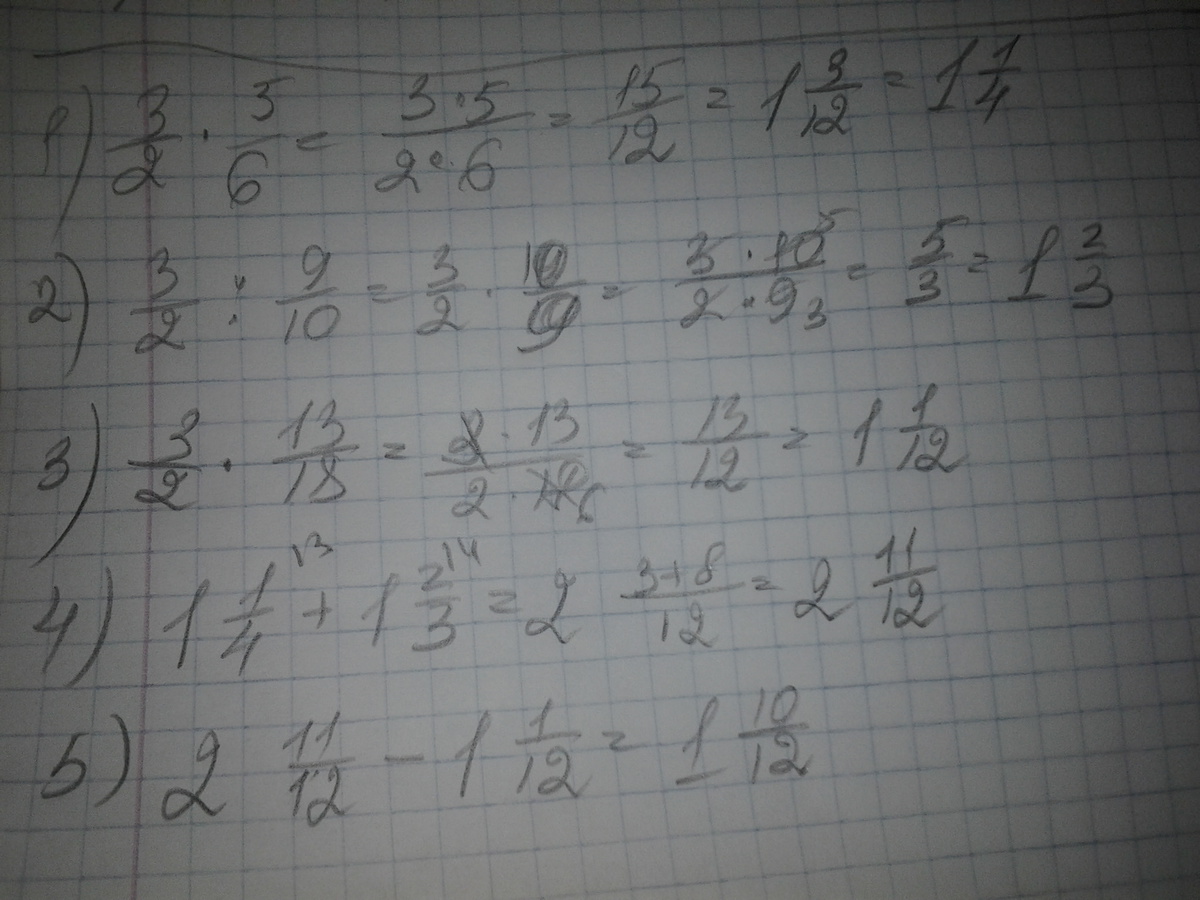 1) 3/2 · 5/6 = 3·5/2·6 = 15/12 = 1 3/12 = 1 1/4
2) 3/2 : 9/10 = 3/2 · 10/9 = 3·10 5/2·9 3 = 5/3 = 1 2/3
3) 3/2 · 13/18 = 3·13/2·18 6 = 13/12 = 1 1/12
4) 1 1/4 \3 + 1 2/3 \4 = 2 3+8/12 = 2 11/12
5) 2 11/12 - 1 1/12 = 1 10/12